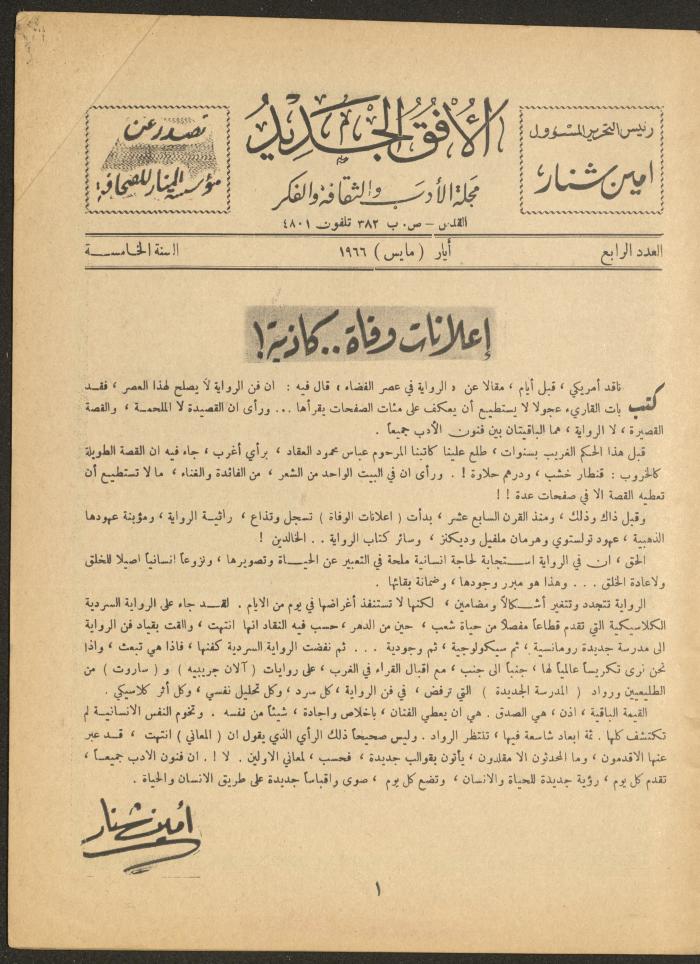 رئيس التحرير المسؤول
امين شنار
الأفق الجديد
مجلة الأدب والثقافة والفكر
القدس - ص. ب ٣٨٢ تلفون ٤٨٠١
تصدر عن
مؤسسة المنار للصحافة
العدد الرابع
أيار ( مايس ) ١٩٦٦
السنة الخامسة
إعلانات وفاة.. كاذبة!
كتب ناقد أمريكي ، قبل أيام ، مقالا عن « الرواية في عصر الفضاء » قال فيه : ان فن الرواية لا يصلح لهذا العصر ، فقد
بات القاريء عجولا لا يستطيع أن يعكف على مئات الصفحات يقرأها ... ورأى ان القصيدة لا الملحمة ، والقصة
القصيرة ، لا الرواية ، هما الباقيتان بين فنون الأدب جميعاً .
قبل هذا الحكم الغريب بسنوات ، طلع علينا كاتبنا المرحوم عباس محمود العقاد ، برأي أغرب ، جاء فيه ان القصة الطويلة
كالخروب : قنطار خشب ، ودرهم حلاوة ! . ورأى ان في البيت الواحد من الشعر ، من الفائدة والغناء ، ما لا تستطيع أن
تعطيه القصة الا في صفحات عدة ! !
وقبل ذاك وذلك ، ومنذ القرن السابع عشر ، بدأت ( اعلانات الوفاة ) تسجل وتذاع ، راثية الرواية ، ومؤبنة عهودها
الذهبية ، عهود تولستوي وهرمان ملفيل وديكنز ، وسائر كتاب الرواية . . الخالدين !
الحق ، ان في الرواية استجابة لحاجة انسانية ملحة في التعبير عن الحياة وتصويرها ، ونزوعاً انسانياً اصيلا للخلق
ولاعادة الخلق . . . وهذا هو مبرر وجودها ، وضمانة بقائها .
الرواية تتجدد وتتغير أشكالاً ومضامين ، لكنها لا تستنفذ أغراضها في يوم من الايام . لقد جاء على الرواية السردية
الكلاسيكية التي تقدم قطاعاً مفصلاً من حياة شعب ، حين من الدهر ، حسب فيه النقاد انها انتهت ، والقت بقياد فن الرواية
الى مدرسة جديدة رومانسية ، ثم سيكولوجية ، ثم وجودية . . . ثم نفضت الرواية السردية كفنها ، فاذا هي تبعث ، واذا
نحن نرى تكريساً عالمياً لها ، جنباً الى جنب ، مع اقبال القراء في الغرب ، على روايات ( آلان جرييه ) و ( ساروت ) من
الطليعيين ورواد ( المدرسة الجديدة ) التي ترفض ، في فن الرواية ، كل سرد ، وكل تحليل نفسي ، وكل أثر كلاسيكي .
القيمة الباقية ، اذن ، هي الصدق . هي ان يعطي الفنان ، باخلاص واجادة ، شيئاً من نفسه . وتخوم النفس الانسانية لم
تكتشف كلها . ثمة ابعاد شاسعة فيها ، تنتظر الرواد . وليس صحيحاً ذلك الرأي الذي يقول ان ( المعاني ) انتهت ، قد عبر
عنها الاقدمون ، وما المحدثون الا مقلدون ، يأتون بقوالب جديدة ، فحسب ، لمعاني الاولين . لا ! . ان فنون الادب جميعاً ،
تقدم كل يوم ، رؤية جديدة للحياة والانسان ، وتضع كل يوم ، صوى واقباساً جديدة على طريق الانسان والحياة .
أمين شنار
١